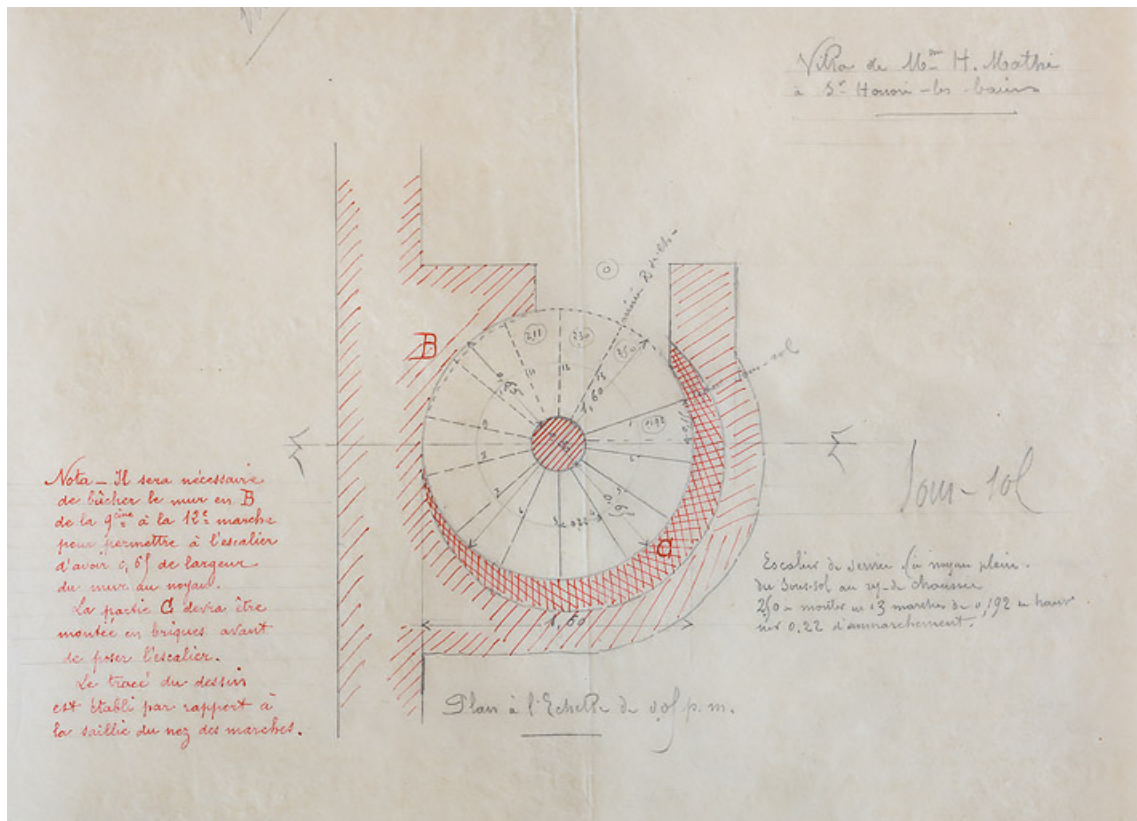 Villa de Mme H. Mathé
à St Honoré-les-bains
B
C
0
2,11
2,30
2,50
0,65
1,60
11
12
13
0,192
1
0,65
Nota — Il sera nécessaire
de bûcher le mur en B
de la 9ème à la 12e marche
pour permettre à l'escalier
d'avoir 0,65 de largeur
du mur au noyau.
La partie C devra être
montée en briques avant
de poser l'escalier.
Le tracé du dessin
est établi par rapport à
la saillie du nez des marches.
Sous-sol
Sous-sol
Escalier de service (à noyau plein.
du sous-sol au rez-de chaussée
2,50 à monter en 13 marches de 0,192 de haut
sur 0,22 d'emmarchement.
1,60
Plan à l'Echelle de 0,05 p. m.